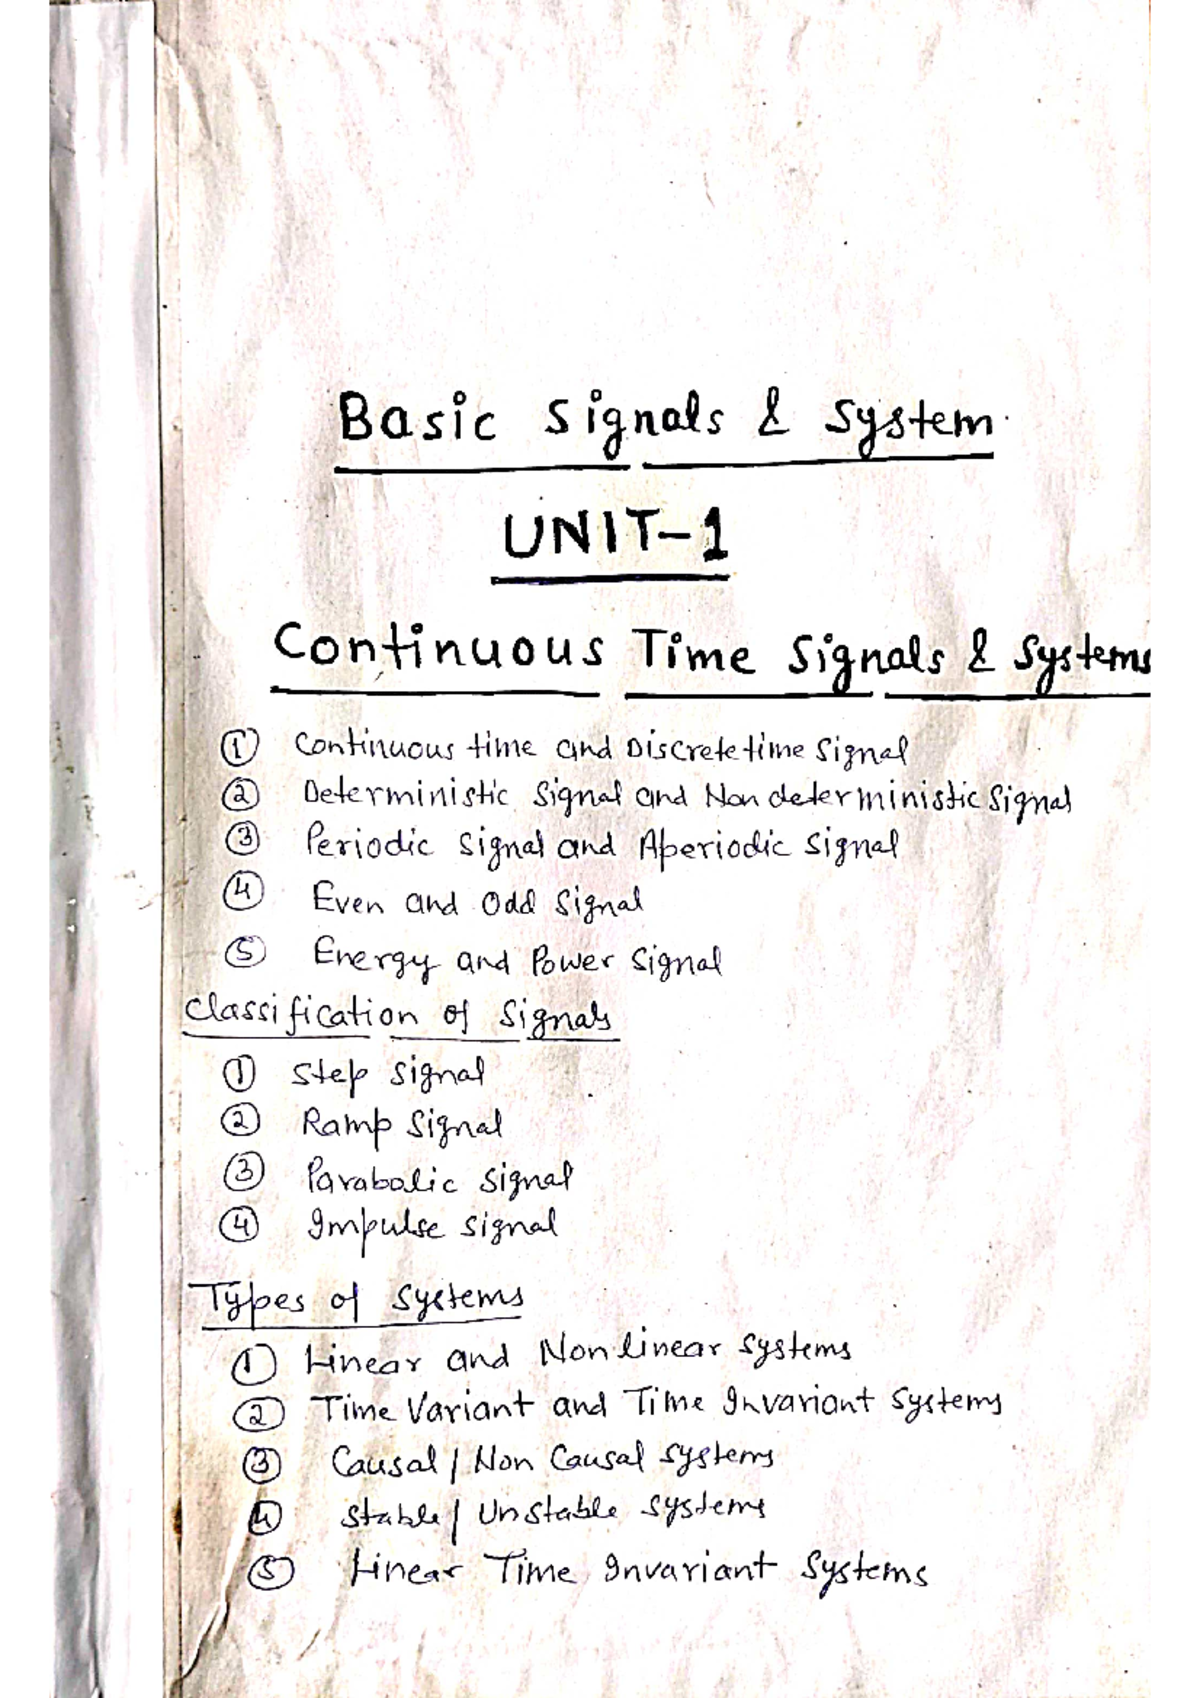 Basic Signals & System
UNIT-1
Continuous Time Signals & Systems
① Continuous time and Discrete time Signal
② Deterministic Signal and Non deterministic Signal
③ Periodic Signal and Aperiodic Signal
④ Even and Odd Signal
⑤ Energy and Power Signal
Classification of Signals
① Step Signal
② Ramp Signal
③ Parabolic Signal
④ Impulse Signal
Types of Systems
① Linear and Non linear Systems
② Time Variant and Time Invariant Systems
③ Causal / Non Causal Systems
④ Stable / Unstable Systems
⑤ Linear Time Invariant Systems